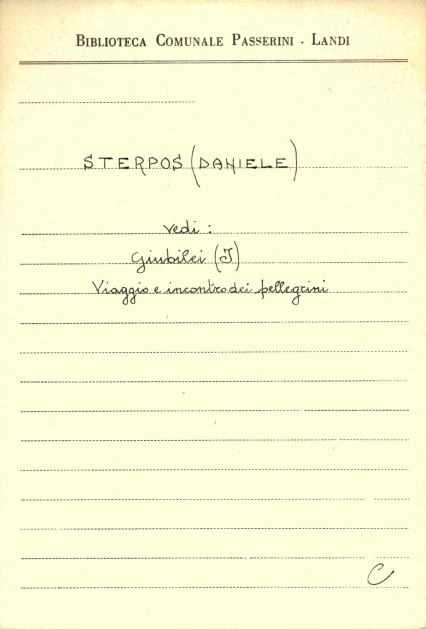 BIBLIOTECA COMUNALE PASSERINI - LANDI
STERPOS (DANIELE)
vedi :
Giubilei (I)
Viaggio e incontro dei pellegrini
C